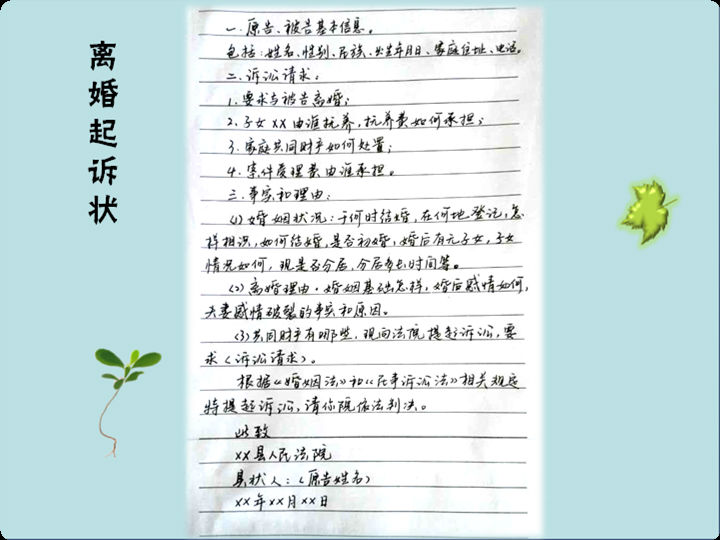 离婚起诉状
一.原告、被告基本信息。
包括:姓名、性别、民族、出生年月日、家庭住址、电话。
二.诉讼请求:
1.要求与被告离婚;
2.子女XX由谁抚养,抚养费如何承担;
3.家庭共同财产如何处置;
4.案件受理费由谁承担。
三.事实和理由:
(1)婚姻状况:于何时结婚,在何地登记,怎
样相识,如何结婚,是否初婚,婚后有无子女,子女
情况如何,现是否分居,分居多长时间等。
(2)离婚理由.婚姻基础怎样,婚后感情如何,
夫妻感情破裂的事实和原因。
(3)共同财产有哪些,现向法院提起诉讼,要
求(诉讼请求)。
根据《婚姻法》和《民事诉讼法》相关规定
特提起诉讼,请你院依法判决。
此致
XX县人民法院
具状人:(原告姓名)
XX年XX月XX日